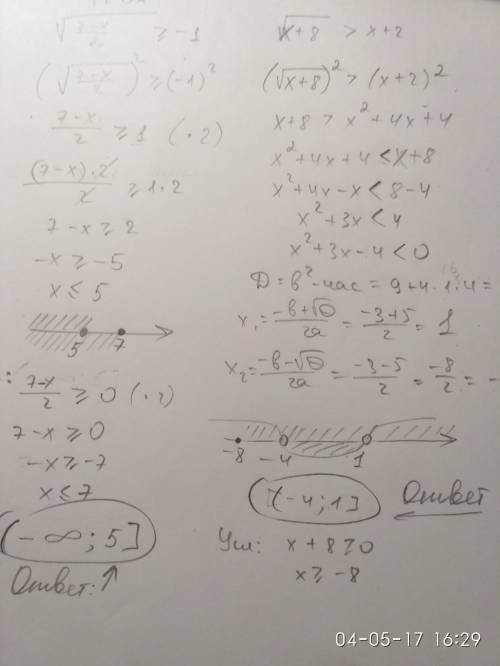 √(7-x/2) ≥ -1
(√(7-x/2))² ≥ (-1)²
7-x/2 ≥ 1 (·2)
(7-x)·2/2 ≥ 1·2
7-x ≥ 2
-x ≥ -5
x ≤ 5
5 7
: 7-x/2 ≥ 0 (·2)
7-x ≥ 0
-x ≥ -7
x ≤ 7
(-∞; 5]
Ответ: ↑
√x+8 > x+2
(√x+8)² > (x+2)²
x+8 > x²+4x+4
x²+4x+4 < x+8
x²+4x-x < 8-4
x²+3x < 4
x²+3x-4 < 0
D = b²-4ac = 9+4·1·4 =
x₁ = -b+√D/2a = -3+5/2 = 1
x₂ = -b-√D/2a = -3-5/2 = -8/2 = -
-8 -4 1
(-4; 1] Ответ
Усл: x+8 ≥ 0
x ≥ -8
04-05-17 16:29